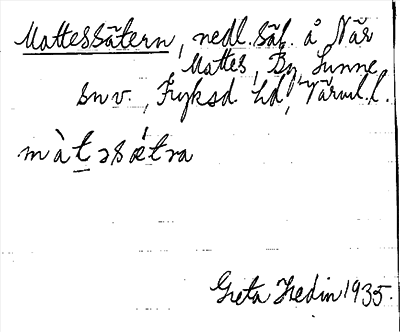 Mattessätern, nedl. säb. å När
Mattes, By, Sunne
snv., Fryksd. hd, Värml. l.
màt̲əsǽtra
Greta Hedin 1935.